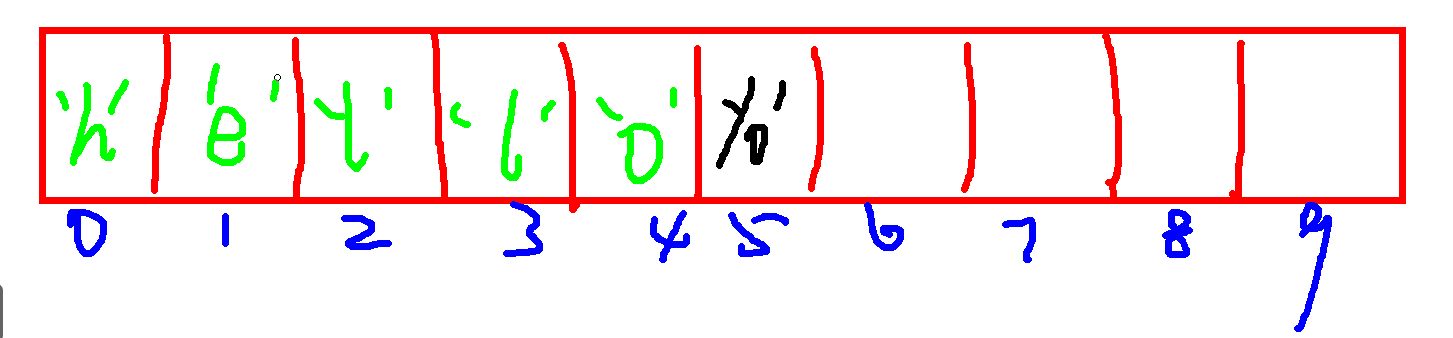 'h' 'e' 'l' 'l' 'o' '\0'
0 1 2 3 4 5 6 7 8 9